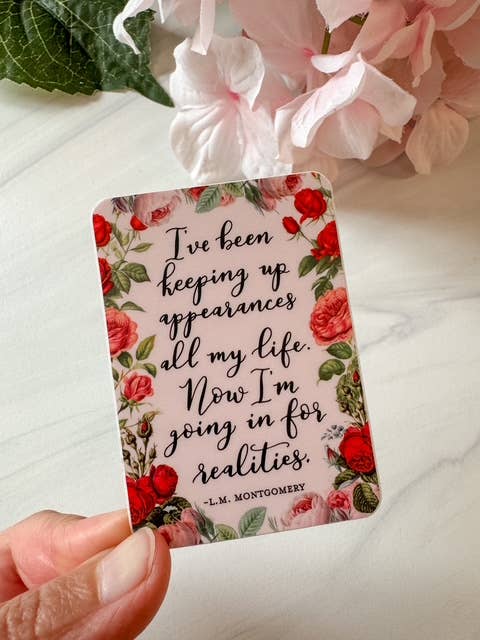 I've been
keeping up
appearances
all my life.
Now I'm
going in for
realities.
-L.M. MONTGOMERY